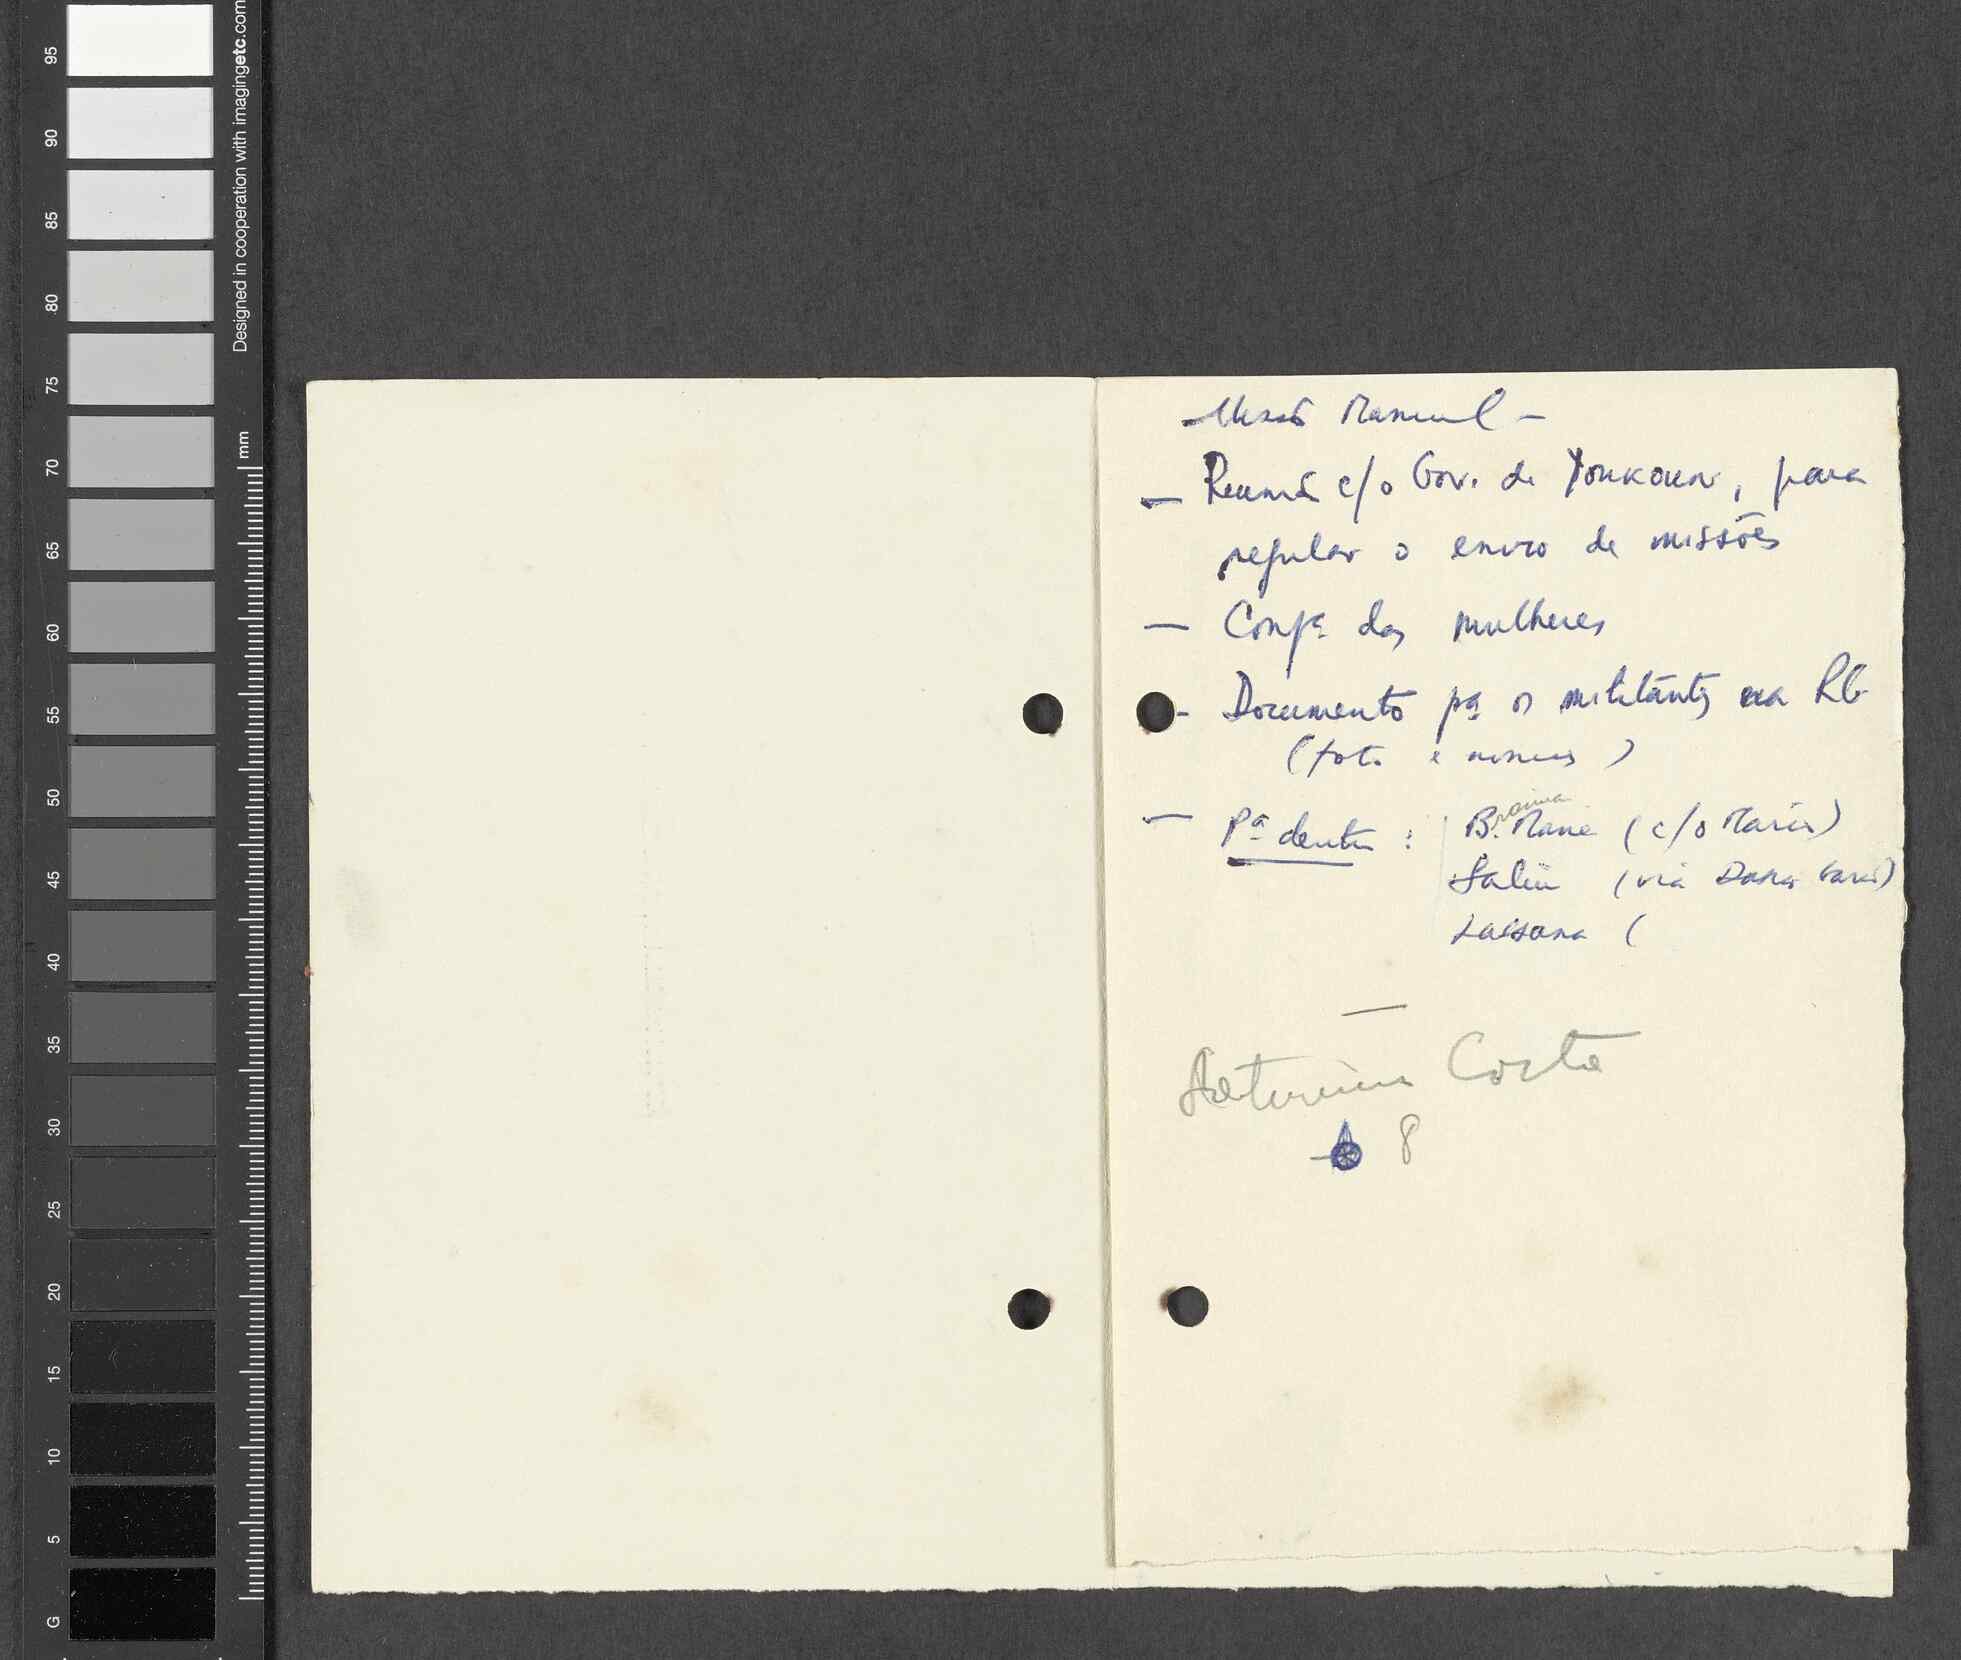 95
90
85
80
75
70
65
60
55
50
45
40
35
30
25
20
15
10
5
G
Designed in cooperation with imagingetc.com
mm
Manuel –
– Reunião c/o Gov. de Youkoun, para
regular o envio de missões
– Confª das mulheres
- Documento pª os militantes na RG
(foto e nomes)
– Pª dentro : B. Mané (c/o Maria)
raima
Saliu (via
Lassana (
—
Saturnino Costa
8